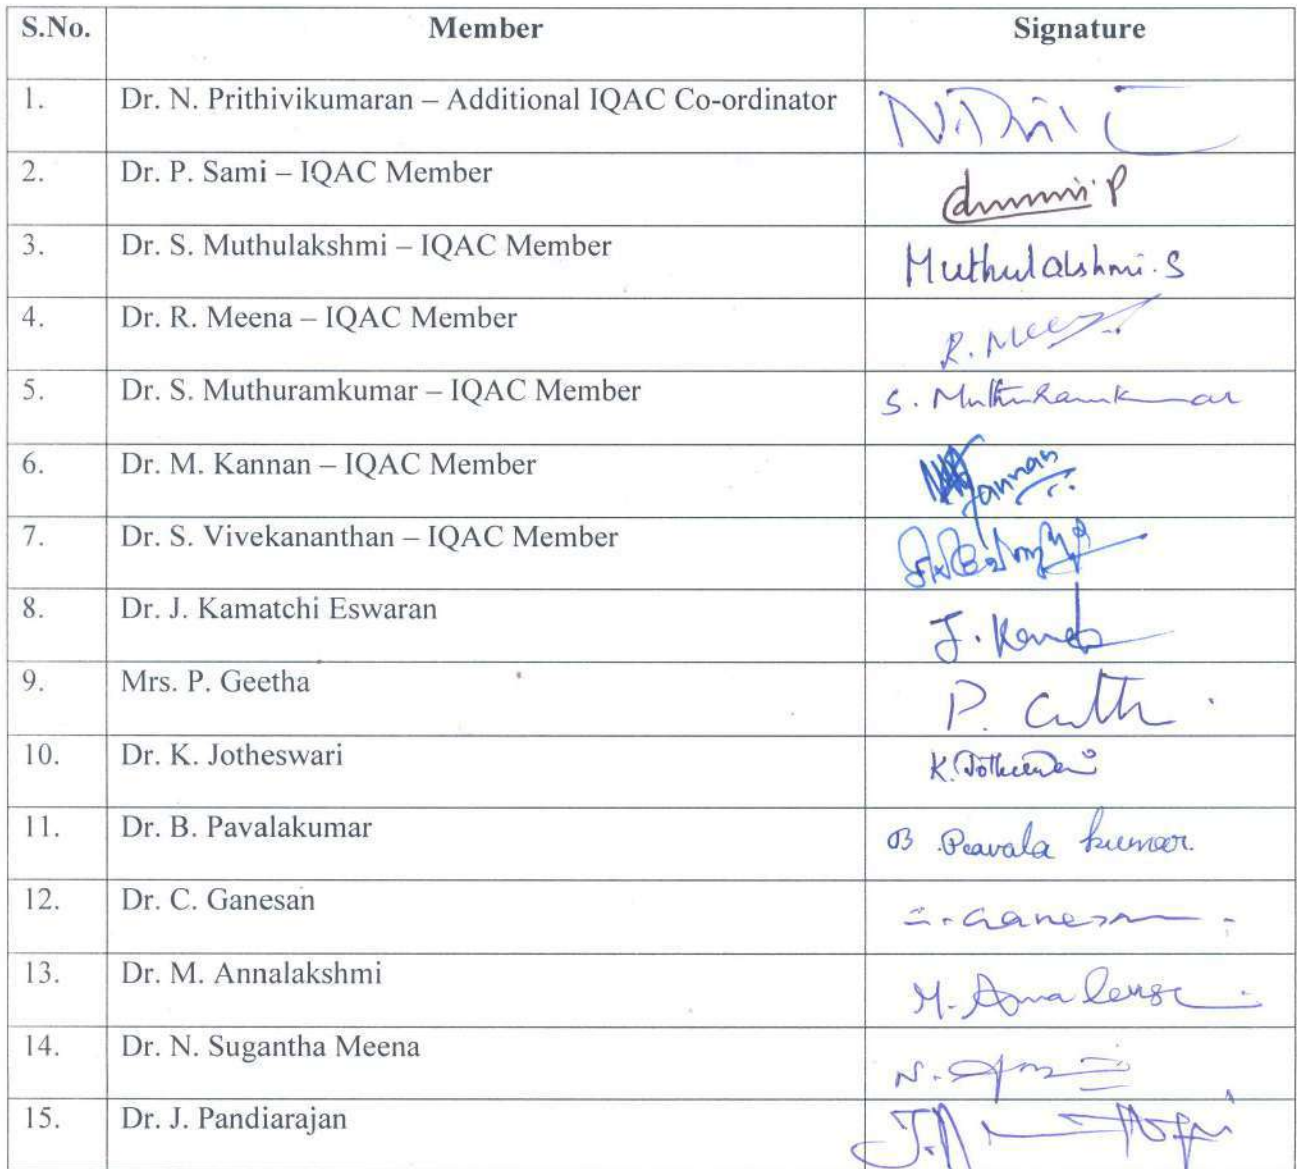 S.No. Member Signature
1. Dr. N. Prithivikumaran – Additional IQAC Co-ordinator
2. Dr. P. Sami – IQAC Member
3. Dr. S. Muthulakshmi – IQAC Member Muthulakshmi. S
4. Dr. R. Meena – IQAC Member R. Mee
5. Dr. S. Muthuramkumar – IQAC Member S. Muthuramkumar
6. Dr. M. Kannan – IQAC Member Kannan
7. Dr. S. Vivekananthan – IQAC Member
8. Dr. J. Kamatchi Eswaran J.
9. Mrs. P. Geetha P.
10. Dr. K. Jotheswari K.
11. Dr. B. Pavalakumar B. Pavala kumar.
12. Dr. C. Ganesan Ganesan
13. Dr. M. Annalakshmi M.
14. Dr. N. Sugantha Meena N.
15. Dr. J. Pandiarajan